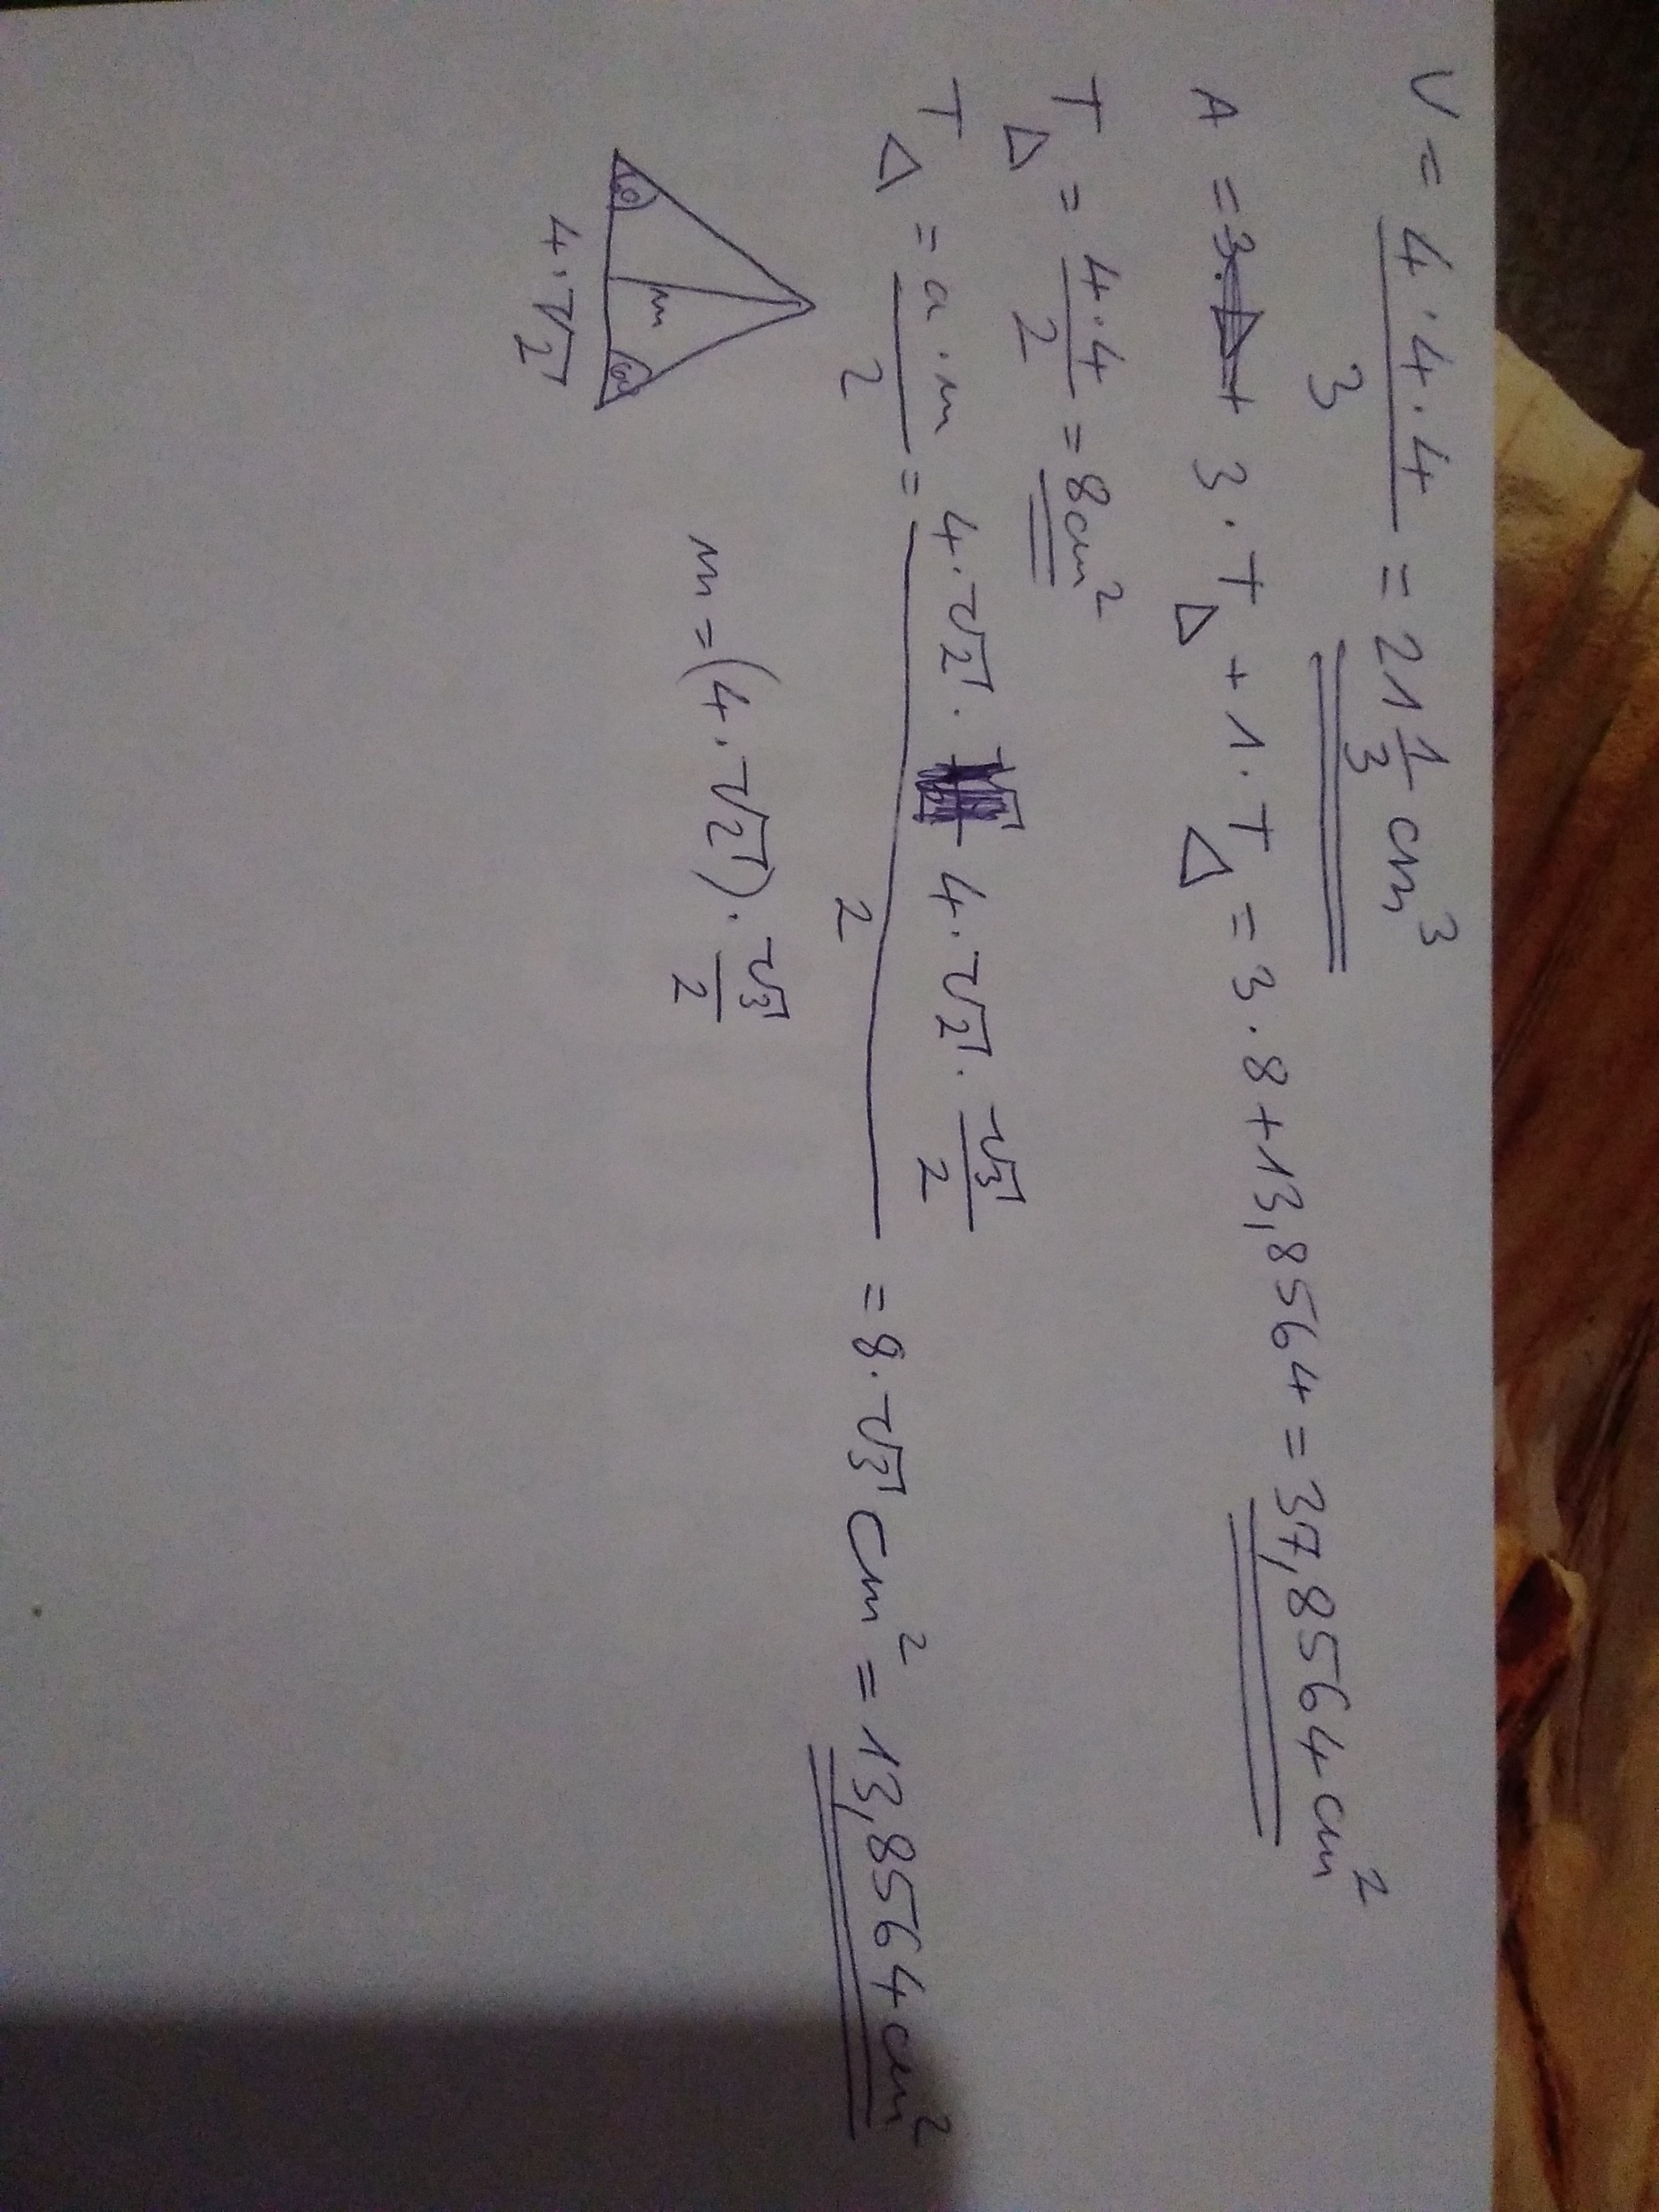 V = 4·4·4/3 = 21 1/3 cm³
A = 3·T△ + 1·T△ = 3·8+13,8564 = 37,8564 cm²
T△ = 4·4/2 = 8cm²
T△ = a·m/2 = 4·√2 · 4·√2 · √3/2 / 2 = 8·√3 cm² = 13,8564 cm²
m
4·√2
m = (4·√2)·√3/2